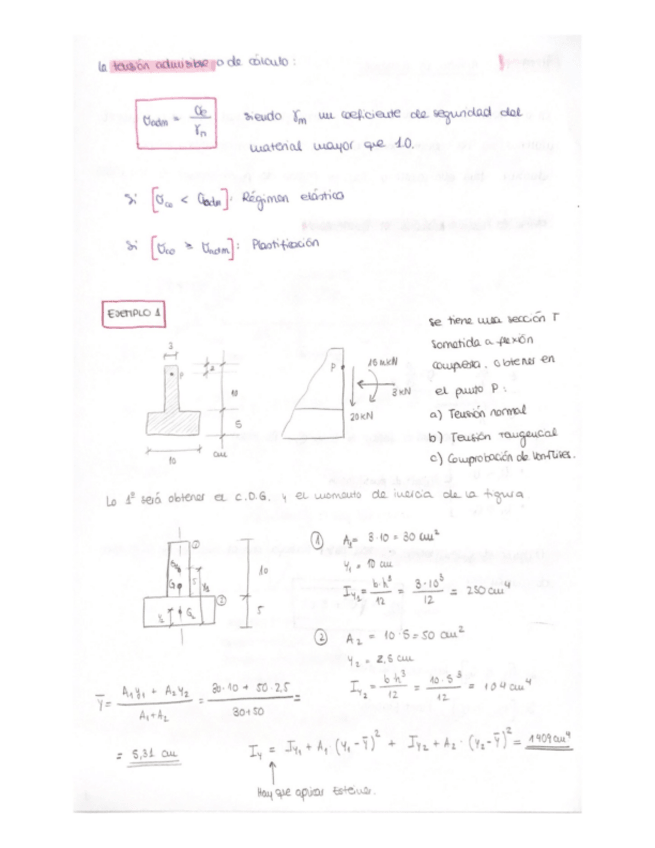 La tensión admisible o de cálculo:
σadm = σe / γm siendo γm un coeficiente de seguridad del
material mayor que 1.0.
Si [σco < σadm]: Régimen elástico
Si [σco ≥ σadm]: Plastificación
EJEMPLO 1
se tiene una sección T
sometida a flexión
compuesta, obtener en
el punto P:
a) Tensión normal
b) Tensión tangencial
c) Comprobación de Von-Mises.
3
P
2
10
5
10
cm
P
10 mkN
3kN
20 kN
Lo 1º será obtener el C.D.G. y el momento de inercia de la figura.
①
G
②
10
5
① A₁ = 3·10 = 30 cm²
y₁ = 10 cm
Iy₁ = b·h³ / 12 = 3·10³ / 12 = 250 cm⁴
② A₂ = 10·5 = 50 cm²
y₂ = 2,5 cm
Iy₂ = b·h³ / 12 = 10·5³ / 12 = 104 cm⁴
ȳ = A₁y₁ + A₂y₂ / A₁+A₂ = 30·10 + 50·2,5 / 30+50 =
= 5,31 cm
Iy = Iy₁ + A₁·(y₁-ȳ)² + Iy₂ + A₂·(y₂-ȳ)² = 1409 cm⁴
Hay que aplicar Steiner.